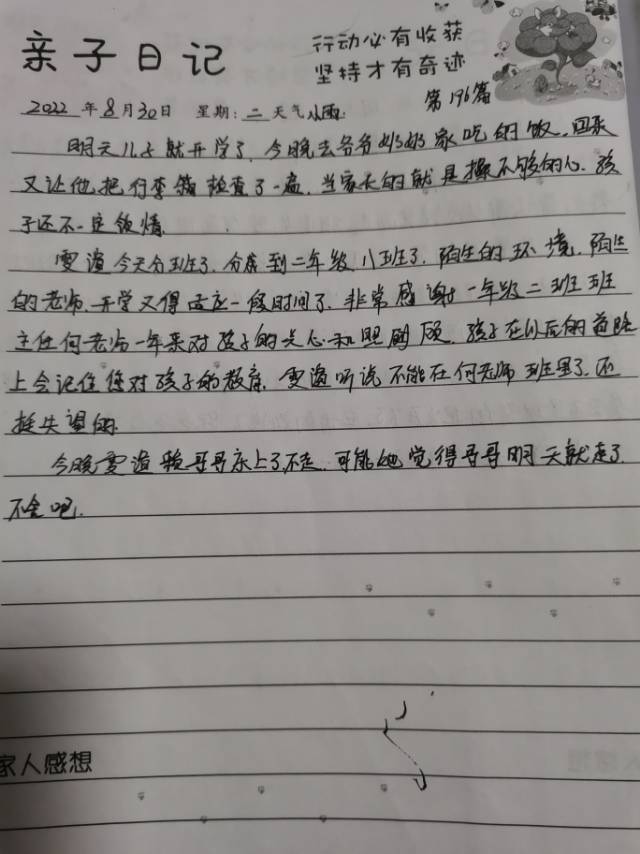 亲子日记
行动必有收获
坚持才有奇迹
第196篇
2022年8月30日 星期:二 天气小雨
明天儿子就开学了,今晚去爷爷奶奶家吃的饭,回来
又让他把行李箱检查了一遍,当家长的就是操不够的心,孩
子还不一定领情.
雯滋今天分班了,分在到二年级八班了,陌生的环境,陌生
的老师,开学又得适应一段时间了,非常感谢一年级二班班
主任何老师一年来对孩子的关心和照顾,孩子在以后的道路
上会记住您对孩子的教育,雯滋听说不能在何老师班里了,还
挺失望的.
今晚雯滋哥哥床上了,不走,可能她觉得哥哥明天就走了.
不舍吧.
家人感想